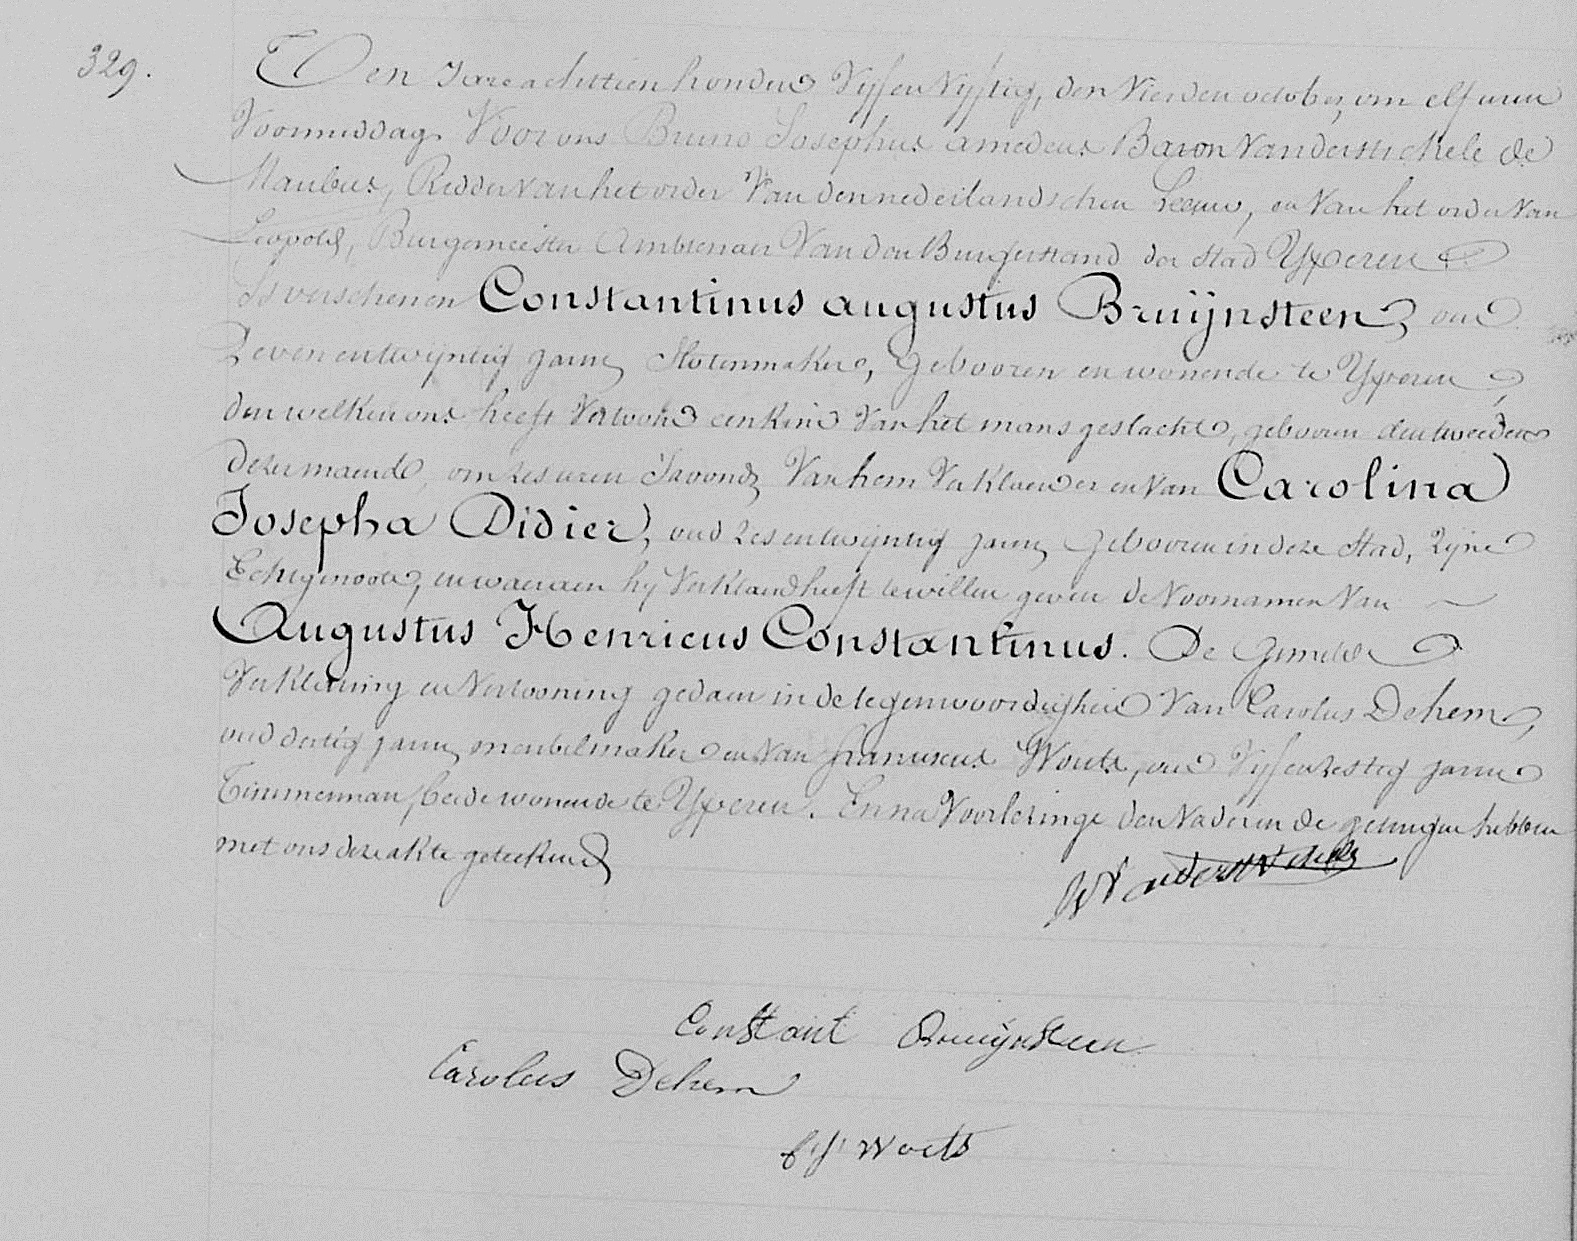 329.
Ten Jare achttien honderd Vijf en Vijftig, den Vierden october, om elf uren
Voormiddag. Voor ons Bruno Josephus amedeus Baron Vanderstichele de
Maubus, Ridder van het order Van den nederlandschen Leeuw, en Van het order Van
Leopold, Burgemeester Ambtenaer Van den Burgerstand der Stad Yperen
Is verschenen Constantinus augustus Bruÿnsteen, oud
Zeven en twijntig jaren, Slotenmaker, gebooren en wonende te Yperen,
den welken ons heeft Vertoond een Kind Van het mans geslacht, gebooren den tweeden
dezer maend, om zes uren Savonds, Van hem Verklaerder en Van Carolina
Josepha Didier, oud zes en twijntig jaren, gebooren in deze Stad, Zijne
Echtgenoote, en waeraen hij Verklaerd heeft te willen geven de Voornamen Van
Augustus Henricus Constantinus. De gemelde
Verklaering en Vertooning gedaen in de tegenwoordigheid Van Carolus Dehem,
oud dertig jaren, meubelmaker en Van franciscus Woets, oud Vijf en zestig jaren
Timmerman, beide wonende te Yperen. En na Voorlezinge den Vader en de getuigen hebben
met ons deze akte geteekend
Vanderstichele
Constant Bruÿnsteen
Carolus Dehem
Woets